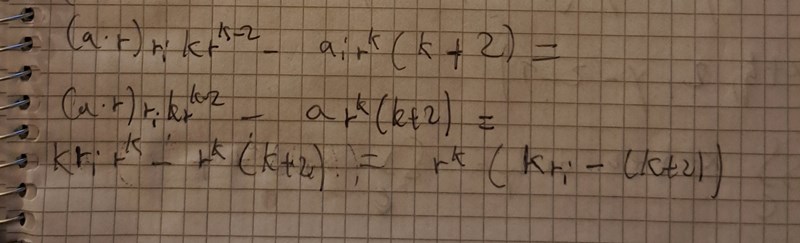 (a·r) rᵢ k r^{k-2} - aᵢ r^k (k+2) =
(a·r) rᵢ k r^{k-2} - a r^k (k+2) =
k rᵢ r^k - r^k (k+2) = r^k (k rᵢ - (k+2))